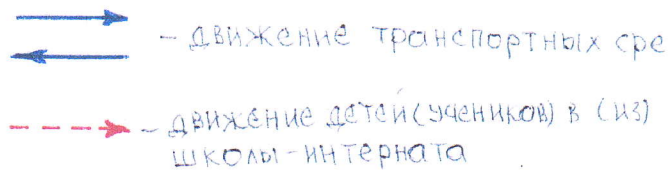 - движение транспортных сре
- движение детей (учеников) в (из)
школы-интерната